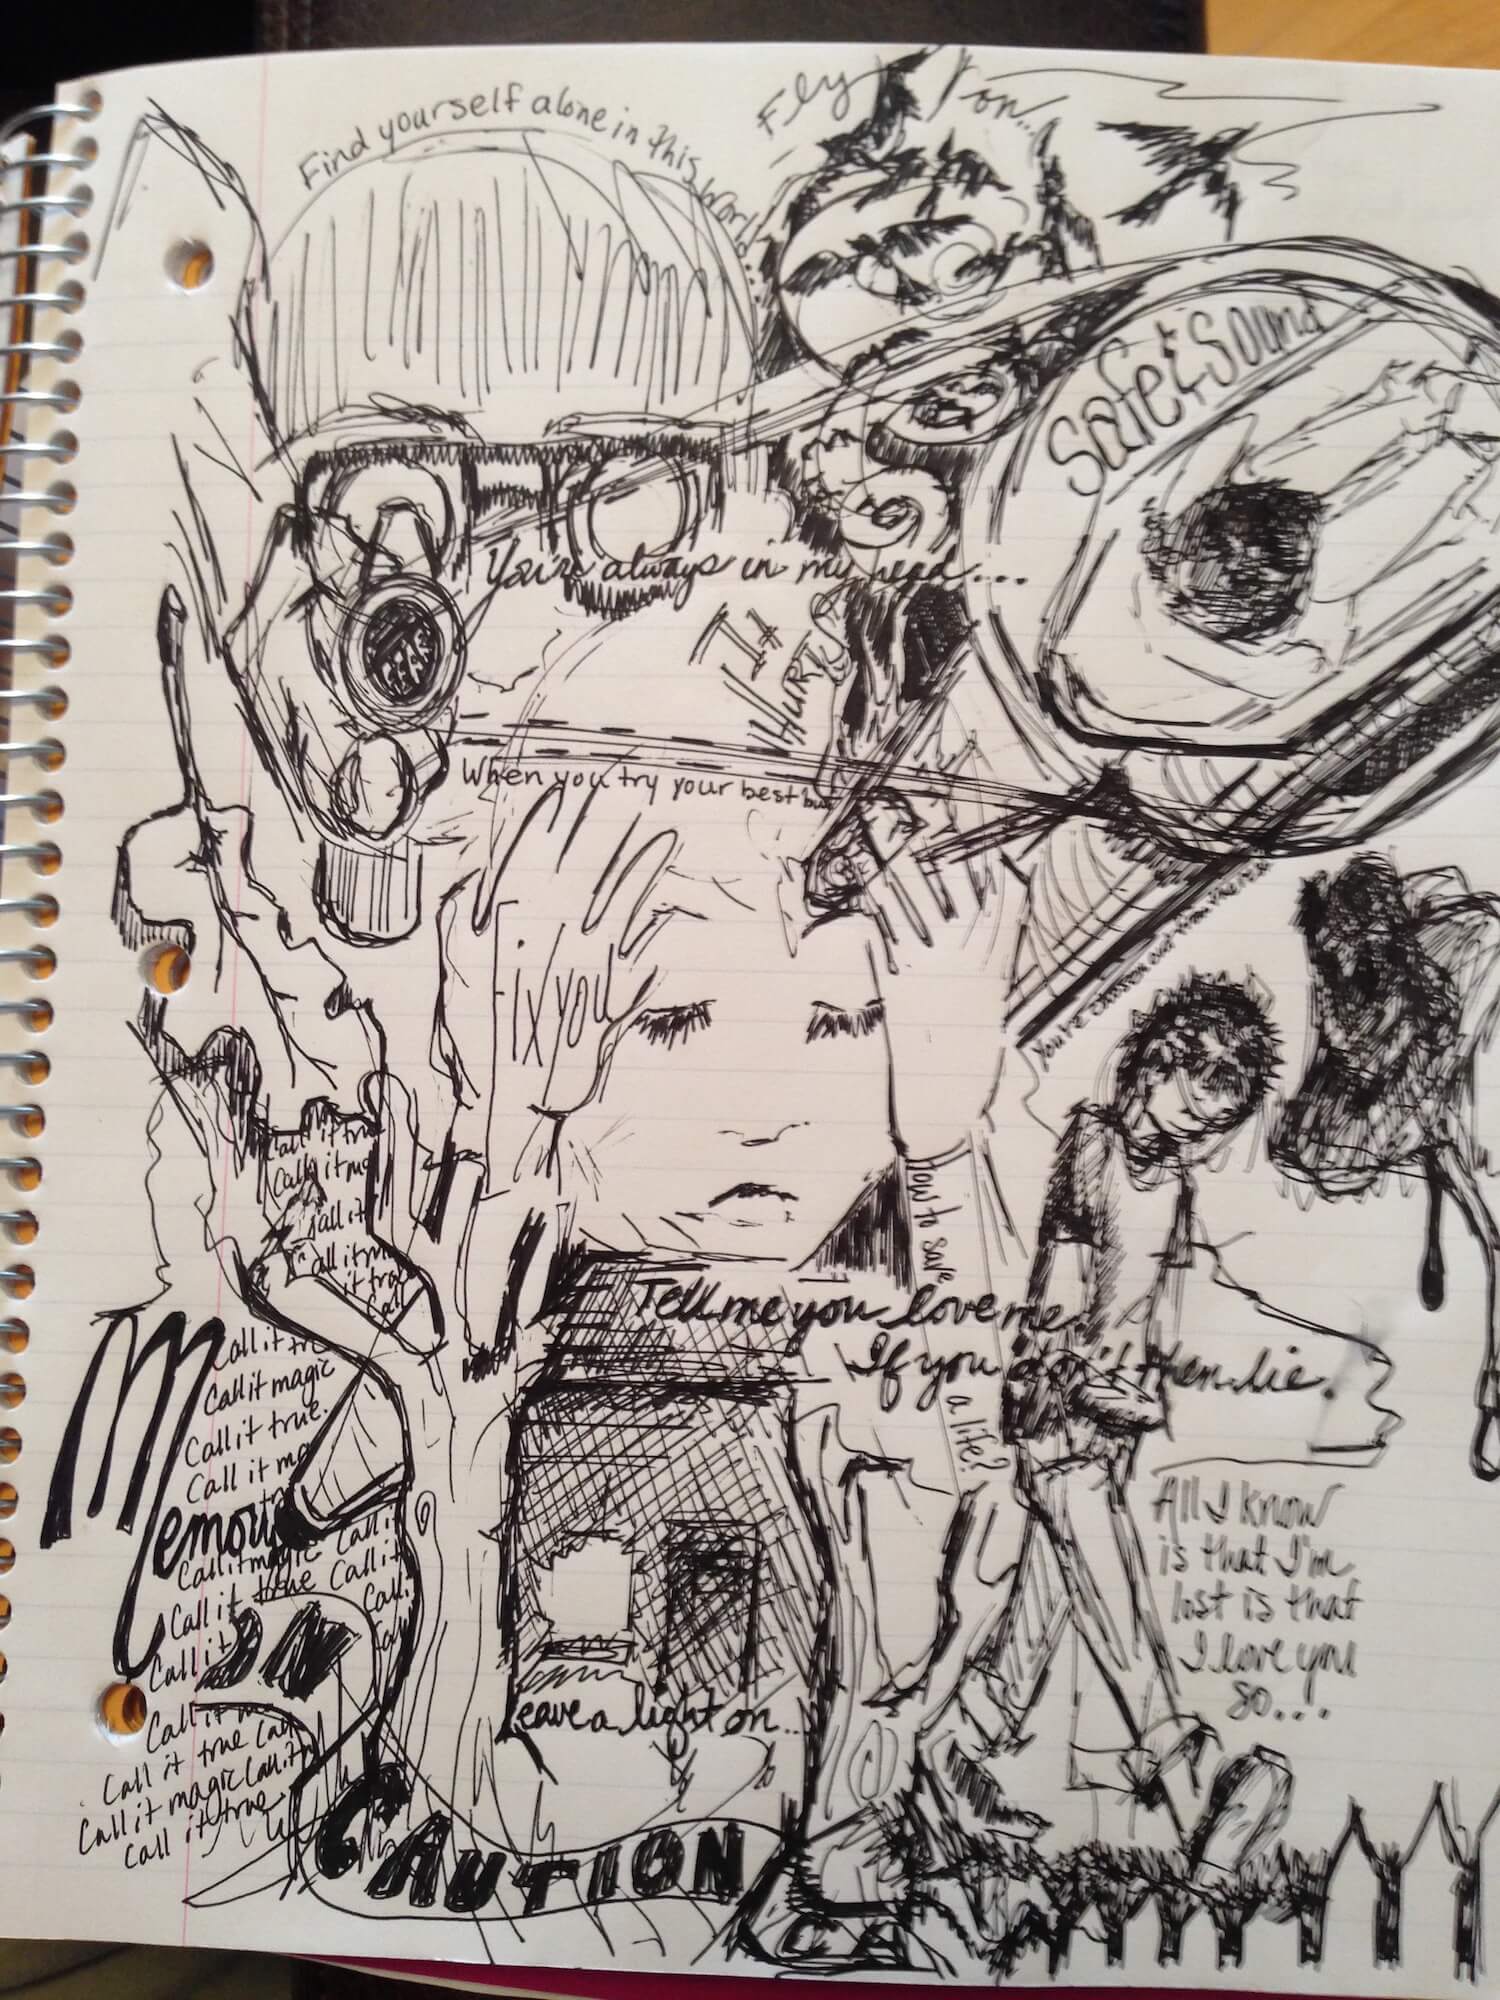 Find yourself alone in this world...
Fly on...
Safe & Sound
You're always in my head...
It
Hurts
When you try your best but
Fix you
How to save
a life?
Tell me you love me.
If you don't then lie.
Call it tru
Call it ma
Call it
Call it m
it tru
Call
Memory
Call it tr
Call it magic
Call it true.
Call it ma
Call it magic Call it
Call it true Call it
Call it
Call it
Call it m
Call it true Call
Call it magic Call it
Call it true
Leave a light on...
All I know
is that I'm
lost is that
I love you
so...
CAUTION
CA